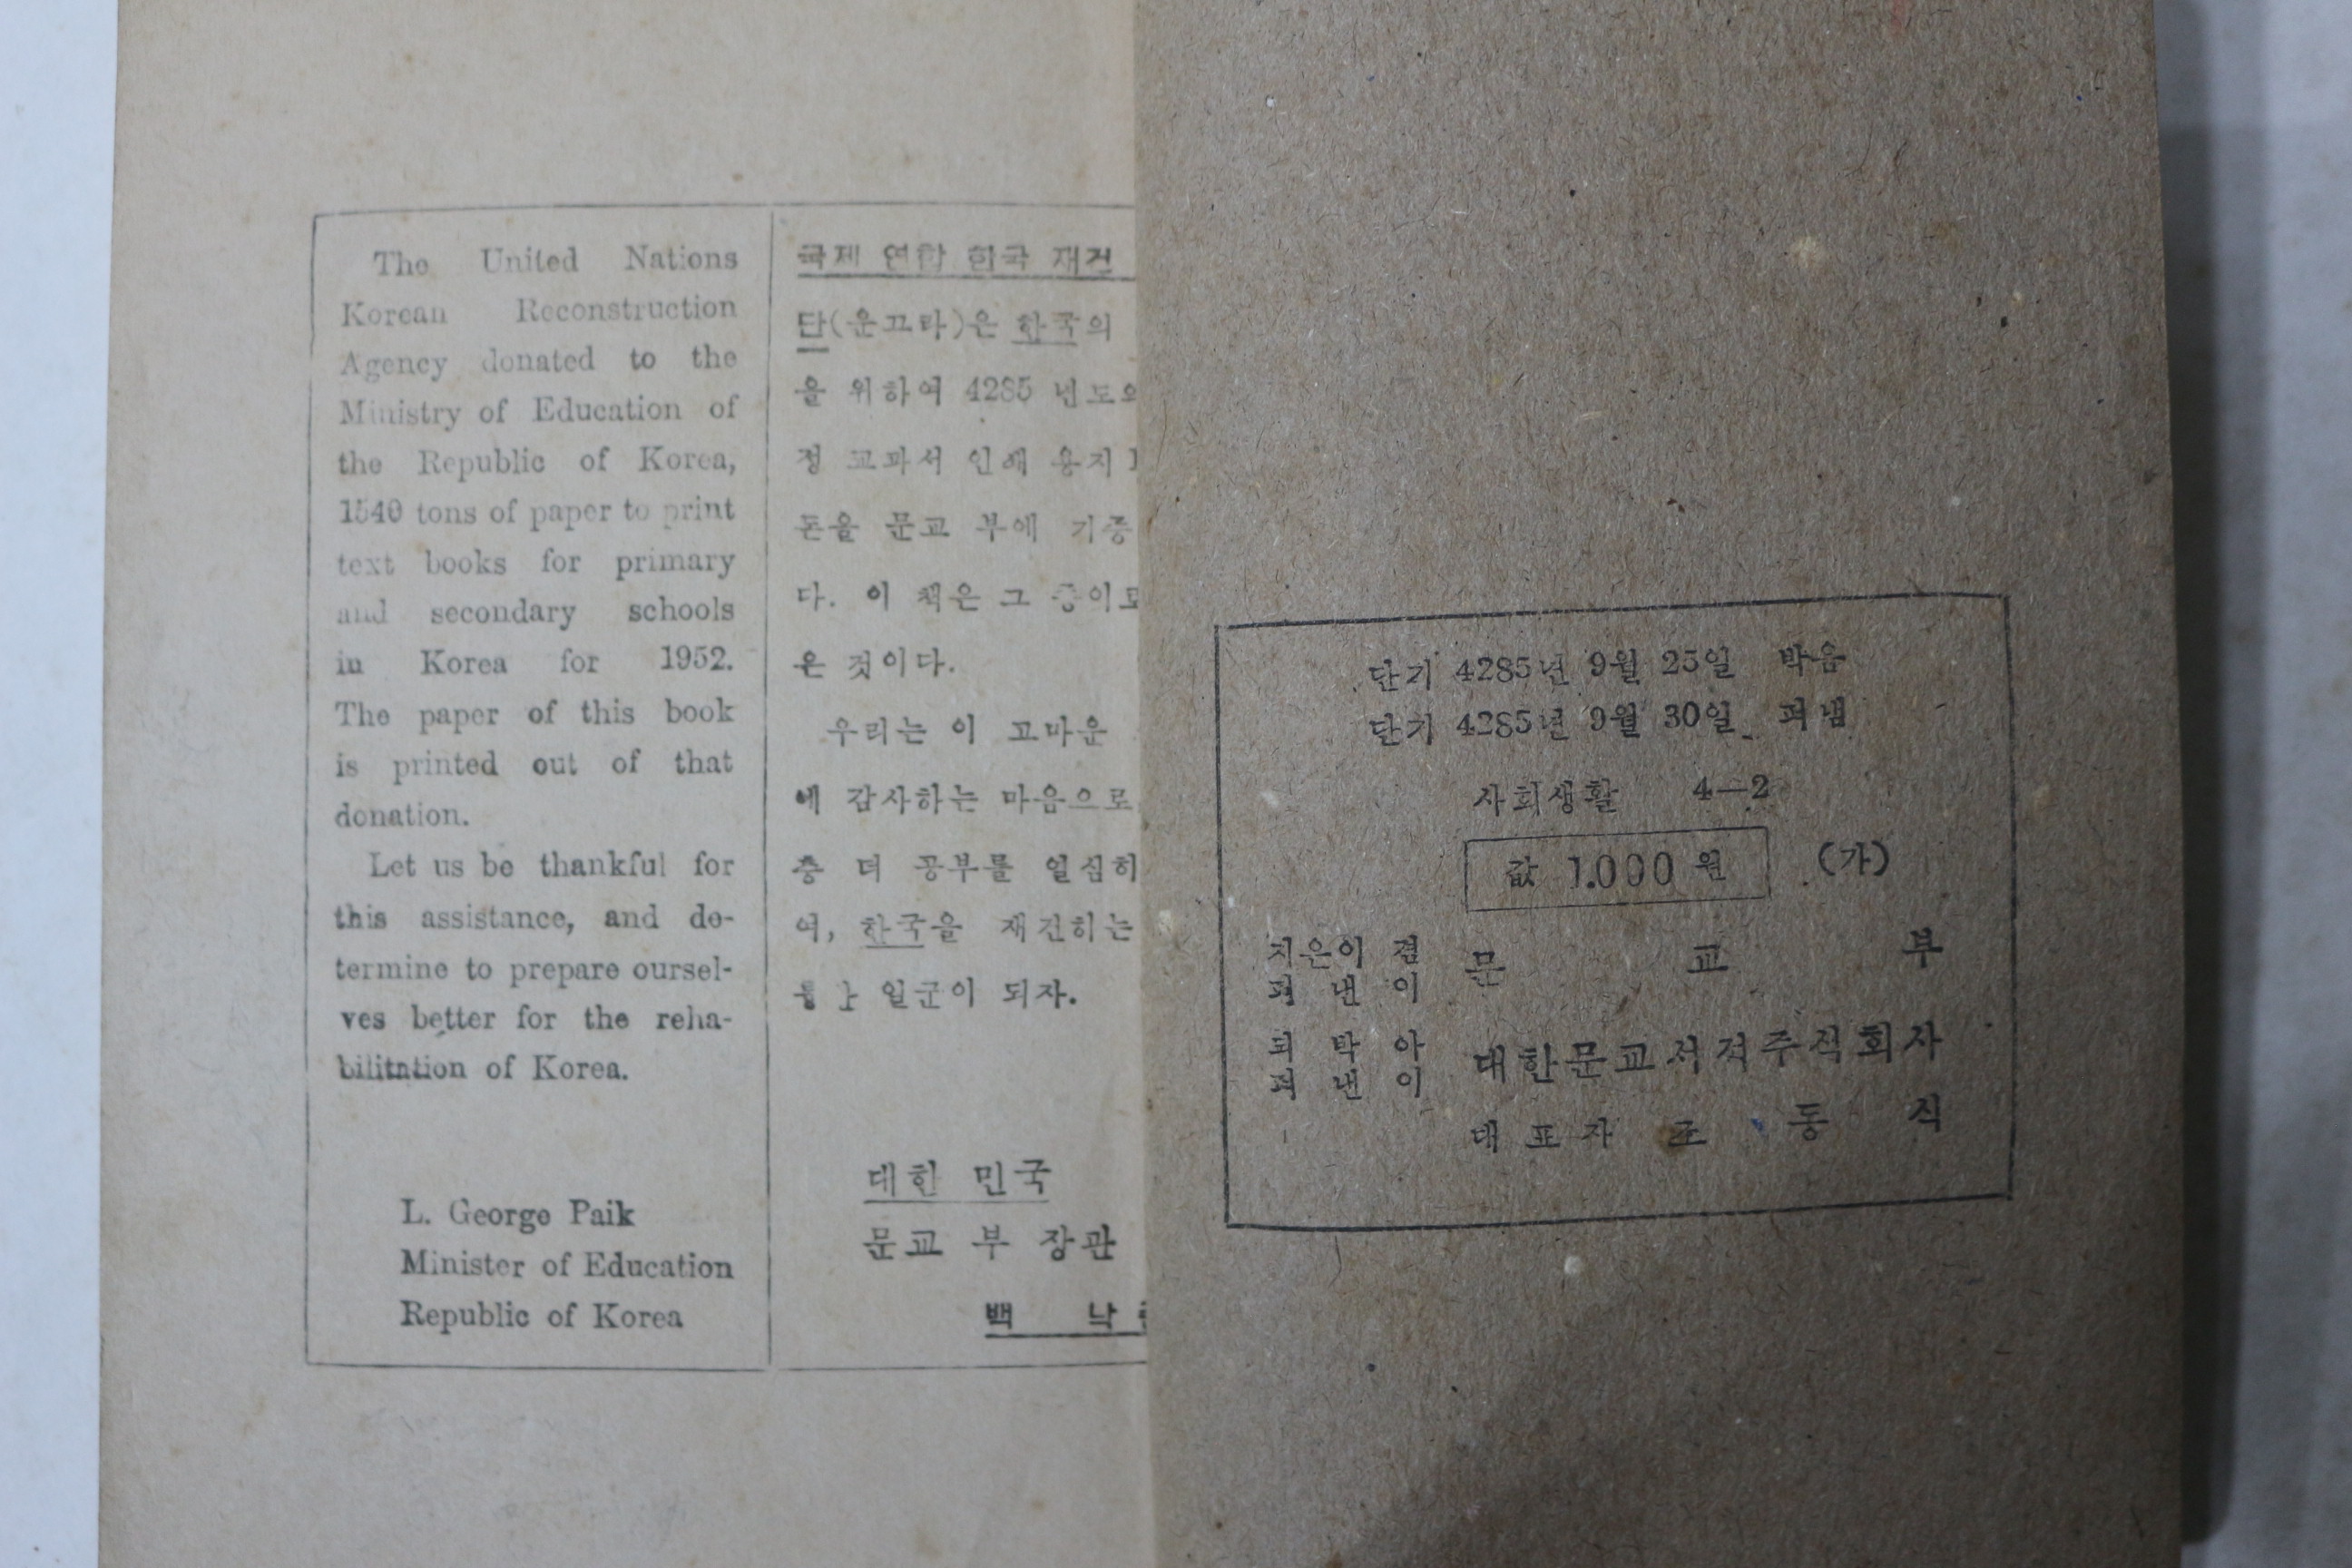 The United Nations
Korean Reconstruction
Agency donated to the
Ministry of Education of
the Republic of Korea,
1540 tons of paper to print
text books for primary
and secondary schools
in Korea for 1952.
The paper of this book
is printed out of that
donation.
Let us be thankful for
this assistance, and de-
termine to prepare oursel-
ves better for the reha-
bilitation of Korea.
L. George Paik
Minister of Education
Republic of Korea
국제 연합 한국 재건
단(운끄라)은 한국의
을 위하여 4285 년도의
정 교과서 인쇄 용지
돈을 문교 부에 기증
다. 이 책은 그 종이로
은 것이다.
우리는 이 고마운
에 감사하는 마음으로
층 더 공부를 열심히
여, 한국을 재건하는
일군이 되자.
대한 민국
문교 부 장관
백 낙
단기 4285년 9월 25일 박음
단기 4285년 9월 30일 펴냄
사회생활 4—2
값 1.000 원 (가)
지은이 겸
펴 낸 이
문 교 부
되 박 아
펴 낸 이
대한문교서적주식회사
대 표 자 동 식